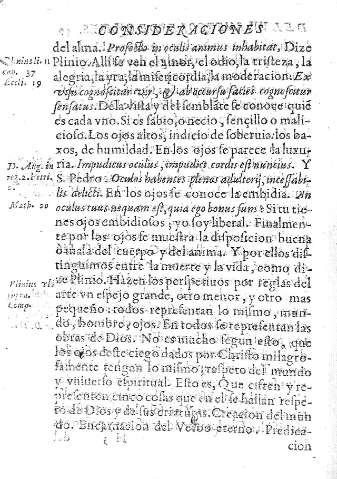 CONSIDERACIONES
del alma. Profecto in oculis animus inhabitat, Dize
Plinio. Alli se ven el amor, el odio, la tristeza, la
alegria, la yra, la misericordia, la moderacion. Ex
visu cognoscitur vir, & ab occursu faciei cognoscitur
sensatus. De la vista y del semblāte se conoce quiē
es cada vno. Si es sabio, o necio, sencillo o mali-
cioso. Los ojos altos, indicio de soberuia: los ba-
xos, de humildad. En los ojos se parece la luxu-
ria. Impudicus oculus, impudici cordis est nuncius. Y
S. Pedro. Oculos habentes plenos adulterij, incessabi-
lis delicti. En los ojos se conoce la embidia. An
oculus tuus nequam est, quia ego bonus sum? Si tu tie-
nes ojos embidiosos, yo soy liberal. Finalmen-
te por los ojos se muestra la disposicion buena
o mala del cuerpo y del anima. Y por ellos dis-
tinguimos entre la muerte y la vida, como di-
ze Plinio. Hazen los perspectiuos por reglas del
arte vn espejo grande, otro menor, y otro mas
pequeño: todos representan lo mismo, mun-
do, hombre, ojos. En todos se representan las
obras de Dios. No es mucho segun esto, que
los ojos deste ciego dados por Christo milagro-
samente tengan lo mismo, respeto del mundo
y vniuerso espiritual. Esto es, Que cifren y re-
presenten cinco cosas que en el se hallan respe-
to de Dios y de sus criaturas. Creacion del mun
do. Encarnacion del Verbo eterno. Predica-
cion
cap. 37
Eccli. 19
D. Aug. in
Math. 20